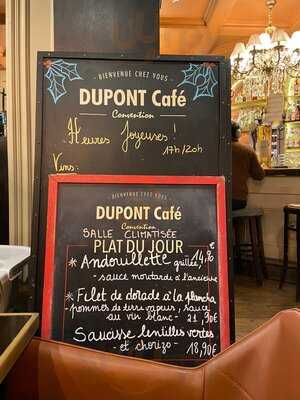 BIENVENUE CHEZ VOUS
DUPONT Café
Convention
Heures Joyeuses!
17h/20h
Vins:
BIENVENUE CHEZ VOUS
DUPONT Café
Convention
SALLE CLIMATISÉE
PLAT DU JOUR
* Andouillette grillée 14,9€
- sauce moutarde à l'ancienne
* Filet de dorade à la plancha
- pommes de terre vapeur, sauce
au vin blanc - 21,90€
Saucisse lentilles vertes
- et chorizo - 18,90€